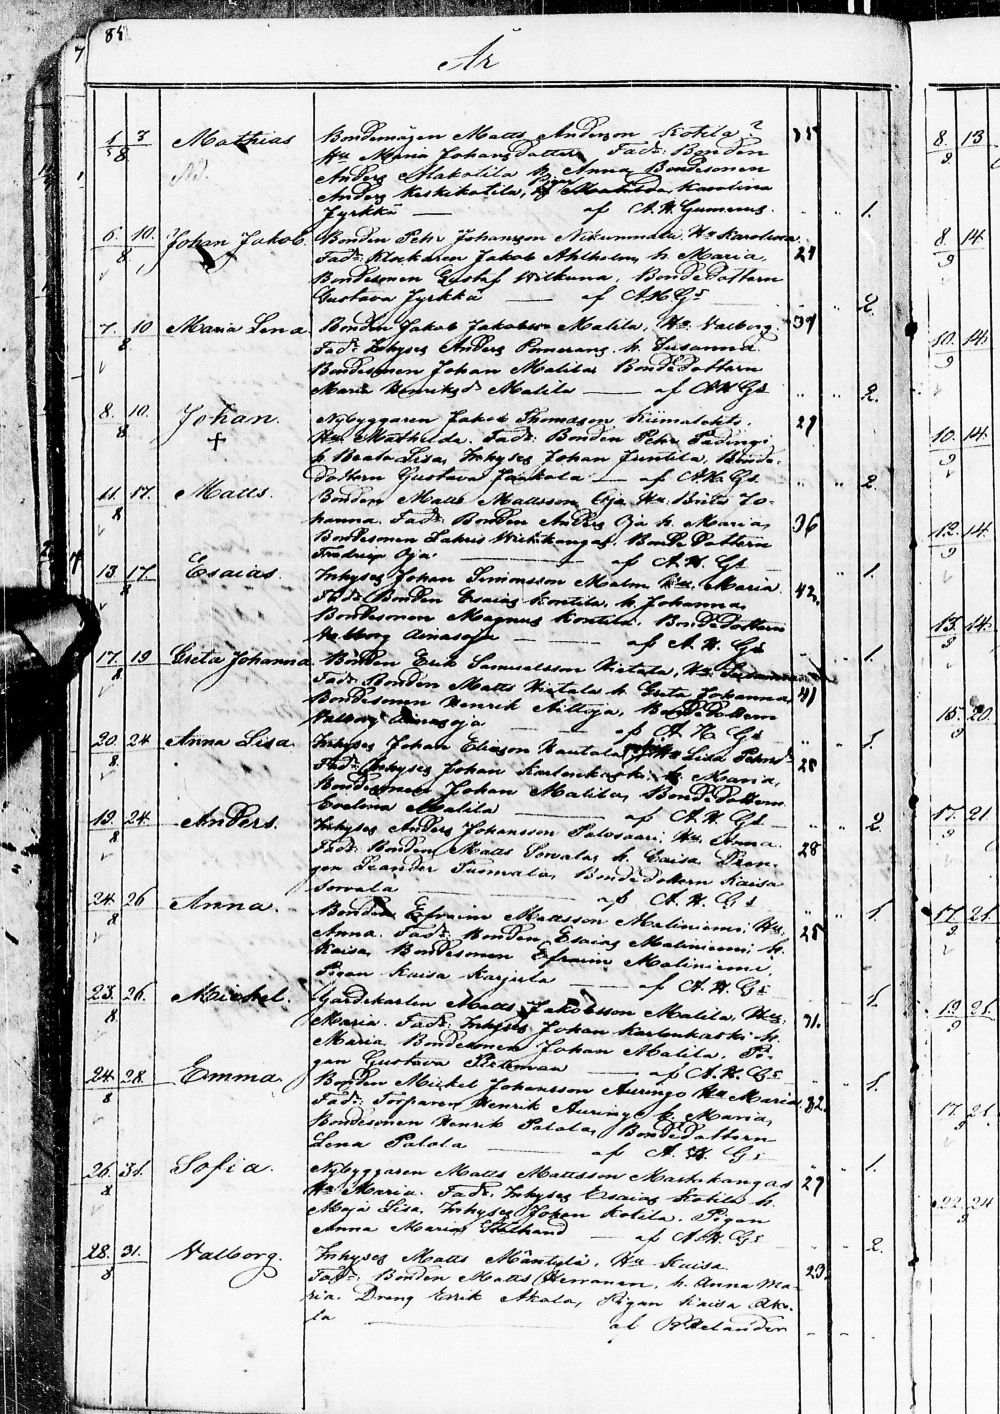 85
År
1 3 Mathias Bondemågen Matts Anderson Kotila 35
8 Hu Maria Johansdotter Fadd: Bonden
Anders Alakotila h. Anna Bondesonen
Anders Keskikotila, Pigan Karolina
Jyrkkä — af A. H. Gumerus. 1.
6. 10. Johan Jakob. Bonden Petr Johansson Nikunmaa Hu Karolina 24
8 Fadd: Klockaren Jakob Ahlholm, h. Maria,
Bondesonen Gustaf Wilkuna, Bondedottern
Gustava Jyrkkä — af A. H. Gs 2.
7. 10 Maria Lena Bonden Jakob Jakobson Malila, Hu Valborg. 39
8 Fadd: Inhyses Anders Pomerans h. Susanna
Bondesonen Johan Malila, Bondedottern
Maria Henriksd. Malila — af A. H. Gs 2.
8. 10. Johan. Nybyggaren Jakob Thomasson Kiimalehto, 29
8 Hu Mathilda. Fadd: Bonden Petr
h. Beata Lisa, Inhyses Johan Juntila, Bonde-
dottern Gustava Jaakola — af A. H. Gs 2.
11. 17. Matts. Bonden Matts Mattsson Oja Hu Brita Jo- 36
8 hanna. Fadd: Bonden Anders Oja h. Maria,
Bondesonen Wichikangas, Bondedottern
Fredrika Oja — af A. H. Gs 1.
13. 17. Esaias. Inhyses Johan Simonsson Malm Hu Maria 42.
8 Fadd: Bonden Esaias Kontila, h. Johanna,
Bondesonen Magnus Kontila, Bondedottern
Valborg Ainasoja — af A. H. Gs 1.
17. 19 Greta Johanna Bonden Erik Samuelsson Wietala, Hu 41
8 Fadd: Bonden Matts Wietala h. Greta Johanna,
Bondesonen Henrik Aittoja, Bondedottern
Valborg Ainasoja — af A. H. Gs 1.
20. 24 Anna Lisa. Inhyses Johan Eliason Kautola Hu Lisa Pehrsd. 25
8. Fadd: Inhyses Johan Karlinkaski h. Maria,
Bondesonen Johan Malila, Bondedottern
Evelina Malila — af A. H. Gs 2.
19. 24. Anders. Inhyses Anders Johansson Palosaari, Hu Anna 28
8 Fadd: Bonden Matts Sorvala, h. Caisa, Dren-
gen Leander Tuomala, Bondedottern Kaisa
Sorvala — af A. H. Gs 1.
24. 26 Anna. Bonden Efraim Mattsson Maliniemi, Hu 25
8 Anna. Fadd: Bonden Esaias Maliniemi h.
Kaisa, Bondesonen Efraim Maliniemi,
Pigan Kaisa Karjula — af A. H. Gs 1.
23. 26. Mickel. Gardskarlen Matts Jakobsson Malila, Hu 31.
8 Maria. Fadd: Inhyses Johan Karlinkaski h.
Maria, Bondesonen Johan Malila, Pi-
gan Gustava Pietiman — af A. H. Gs 1.
24. 28. Emma. Bonden Mickel Johansson Auringo Hu Maria 32.
8 Fadd: Torparen Henrik Auringo h. Maria,
Bondesonen Henrik Palola, Bondedottern
Lena Palola — af A. H. Gs 1.
26. 31. Sofia. Nybyggaren Matts Mattsson Mastokangas 29
8 Hu Maria. Fadd: Inhyses Esaias Kotila h.
Maja Lisa, Inhyses Johan Kotila, Pigan
Anna Maria Stålhand — af A. H. Gs 2.
28. 31. Valborg. Inhyses Matts Mäntylä, Hu Kaisa. 23.
8 Fadd: Bonden Matts Herranen, h. Anna Ma-
ria. Dreng Erik Akola, Pigan Kaisa Ako-
la — af Helander
8. 13
9
8. 14
9
10. 14.
9
10. 14.
9
12. 14.
9
13. 14.
9
15. 20.
9
17. 21
9
17. 21.
9
19. 21.
9
17. 21.
9
22. 24
9